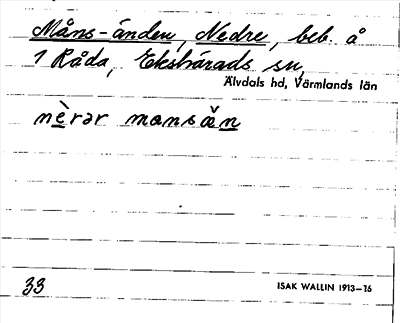 Måns-änden, Nedre, beb. å
1 Råda, Ekshärads sn,
Älvdals hd, Värmlands län
nèrər mansǎn
33
ISAK WALLIN 1913–16